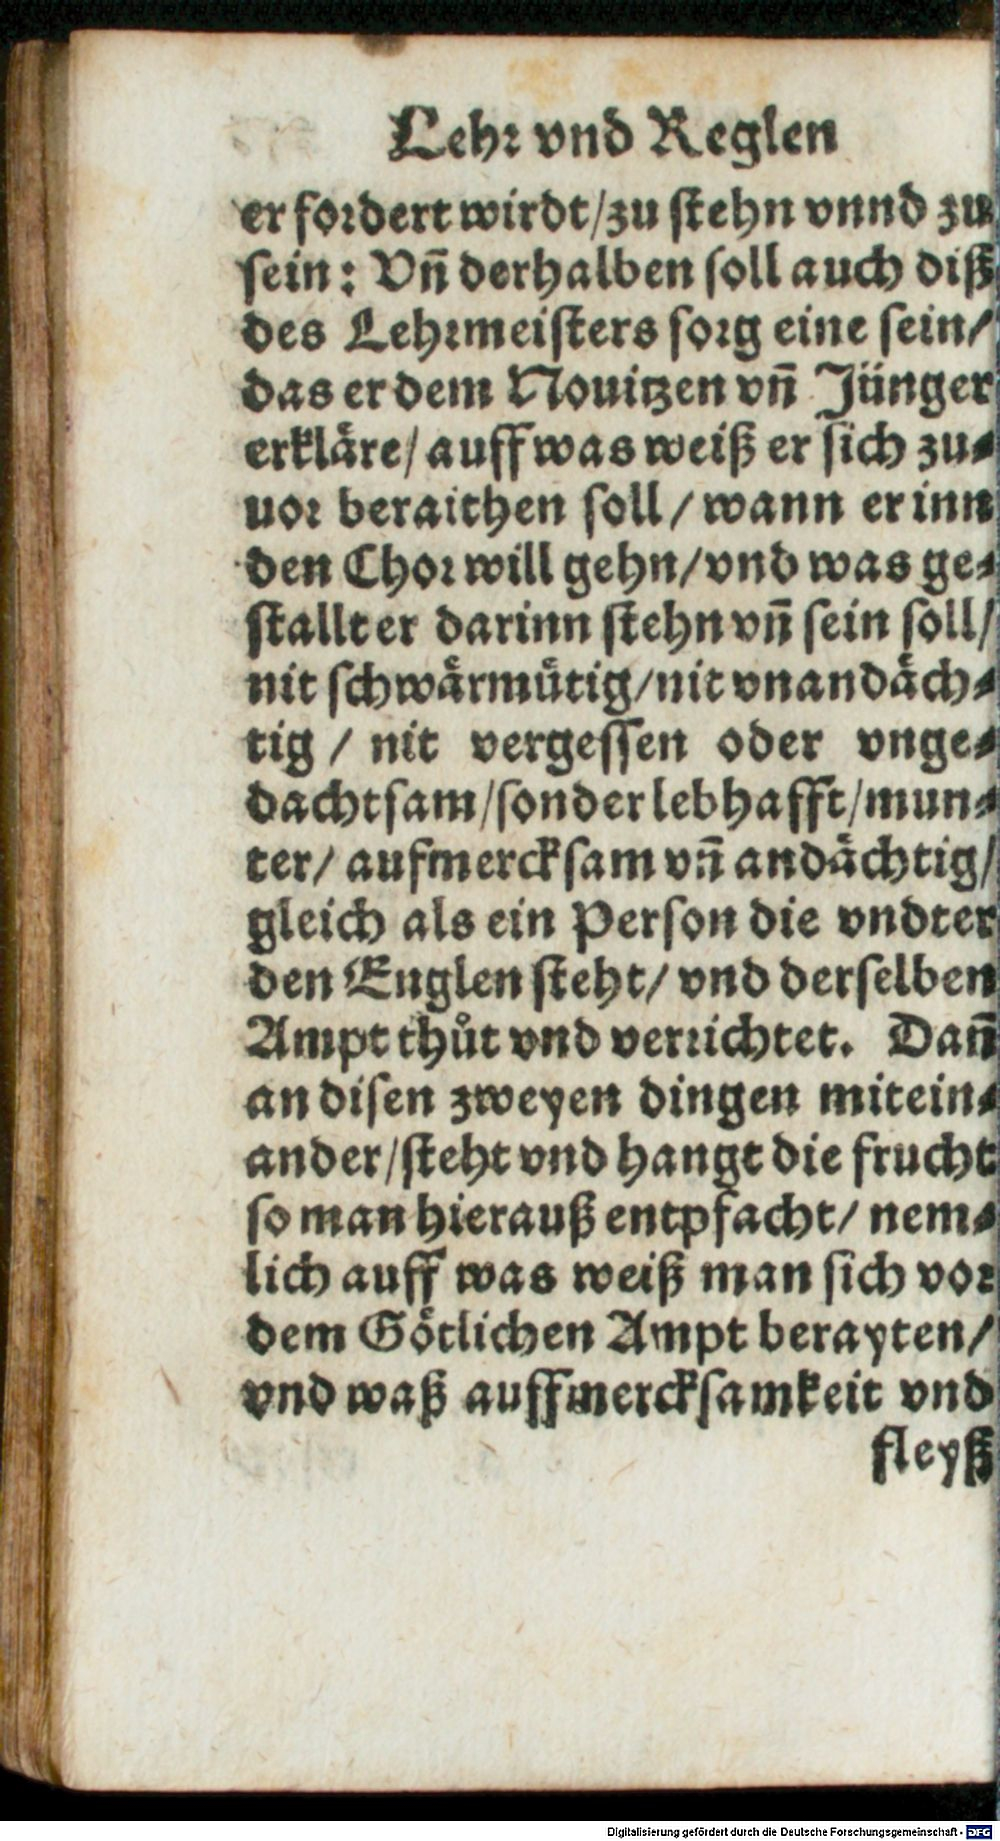 Lehr vnd Reglen
erfordert wirdt/zu stehn vnnd zu
sein: Vn̄ derhalben soll auch diß
des Lehrmeisters sorg eine sein/
das er dem Nouitzen vn̄ Jünger
erkläre/ auff was weiß er sich zu⸗
uor beraithen soll / wann er inn
den Chor will gehn/vnd was ge⸗
stallt er darinn stehn vn̄ sein soll/
nit schwärmütig/nit vnandäch⸗
tig / nit vergessen oder vnge⸗
dachtsam/sonder lebhafft/mun⸗
ter/ aufmercksam vn̄ andächtig/
gleich als ein Person die vndter
den Englen steht/ vnd derselben
Ampt thůt vnd verrichtet. Dan̄
an disen zweyen dingen mitein⸗
ander/steht vnd hangt die frucht
so man hierauß entpfacht/ nem⸗
lich auff was weiß man sich vor
dem Götlichen Ampt berayten/
vnd waß auffmercksamkeit vnd
fleyß
Digitalisierung gefördert durch die Deutsche Forschungsgemeinschaft - DFG